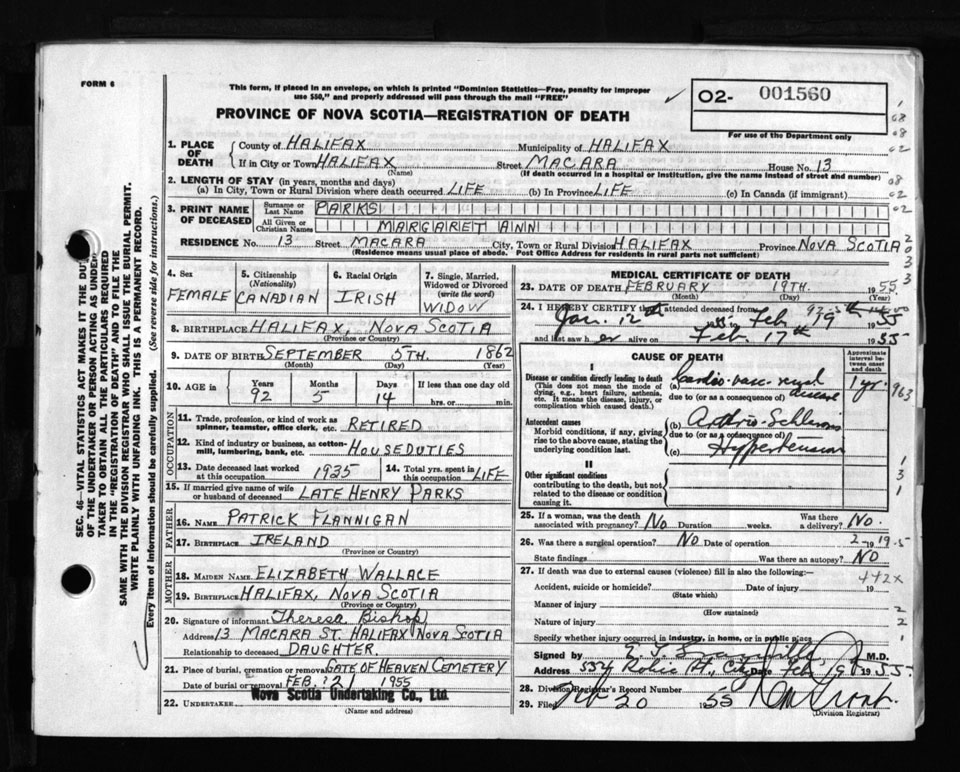 FORM 6
This form, if placed in an envelope, on which is printed "Dominion Statistics—Free, penalty for improper
use $50," and properly addressed will pass through the mail "FREE"
PROVINCE OF NOVA SCOTIA—REGISTRATION OF DEATH
02- 001560
For use of the Department only
1. PLACE OF DEATH
County of HALIFAX Municipality of HALIFAX
If in City or Town HALIFAX Street MACARA House No. 13
(Name) (If death occurred in a hospital or institution, give the name instead of street and number)
2. LENGTH OF STAY (in years, months and days)
(a) In City, Town or Rural Division where death occurred LIFE (b) In Province LIFE (c) In Canada (if immigrant)
3. PRINT NAME OF DECEASED
Surname or Last Name PARKS
All Given or Christian Names MARGARET ANN
RESIDENCE No. 13 Street MACARA City, Town or Rural Division HALIFAX Province NOVA SCOTIA
(Residence means usual place of abode. Post Office Address for residents in rural parts not sufficient)
4. Sex FEMALE
5. Citizenship (Nationality) CANADIAN
6. Racial Origin IRISH
7. Single, Married, Widowed or Divorced (write the word) WIDOW
8. BIRTHPLACE HALIFAX, NOVA SCOTIA
(Province or Country)
9. DATE OF BIRTH SEPTEMBER 5TH. 1862
(Month) (Day) (Year)
10. AGE in Years 92 Months 5 Days 14 If less than one day old
hrs. or min.
OCCUPATION
11. Trade, profession, or kind of work as
spinner, teamster, office clerk, etc. RETIRED
12. Kind of industry or business, as cotton-
mill, lumbering, bank, etc. HOUSEDUTIES
13. Date deceased last worked
at this occupation 1935
14. Total yrs. spent in
this occupation LIFE
15. If married give name of wife
or husband of deceased LATE HENRY PARKS
FATHER
16. NAME PATRICK FLANNIGAN
17. BIRTHPLACE IRELAND
(Province or Country)
MOTHER
18. MAIDEN NAME ELIZABETH WALLACE
19. BIRTHPLACE HALIFAX, NOVA SCOTIA
(Province or Country)
20. Signature of informant Theresa Bishop
Address 13 MACARA ST. HALIFAX NOVA SCOTIA
Relationship to deceased DAUGHTER.
21. Place of burial, cremation or removal GATE OF HEAVEN CEMETERY
Date of burial or removal FEB. 21 1955
22. UNDERTAKER Nova Scotia Undertaking Co., Ltd.
(Name and address)
MEDICAL CERTIFICATE OF DEATH
23. DATE OF DEATH FEBRUARY 19TH. 1955
(Month) (Day) (Year)
24. I HEREBY CERTIFY that I attended deceased from
Jan. 12th Feb 19th 1955
and last saw her alive on Feb. 17th 1955
CAUSE OF DEATH
Approximate interval between onset and death
I
Disease or condition directly leading to death
(This does not mean the mode of
dying, e.g., heart failure, asthenia,
etc. It means the disease, injury, or
complication which caused death.)
(a) Cardio-vasc-renal disease 1 yr.
due to (or as a consequence of)
Antecedent causes
Morbid conditions, if any, giving
rise to the above cause, stating the
underlying condition last.
(b) Arthrio-
due to (or as a consequence of)
(c) Hypertension
II
Other significant conditions
contributing to the death, but not
related to the disease or condition
causing it.
25. If a woman, was the death
associated with pregnancy? NO Duration weeks. Was there a delivery? NO.
26. Was there a surgical operation? NO Date of operation 19
State findings Was there an autopsy? NO
27. If death was due to external causes (violence) fill in also the following:
442X
Accident, suicide or homicide? Date of injury 19
(State which)
Manner of injury
(How sustained)
Nature of injury
Specify whether injury occurred in industry, in home, or in public place
Signed by M.D.
Address St., City Date Feb 19 1955
28. Division Registrar's Record Number
29. Filed Feb 20 1955
(Division Registrar)
SEC. 46—VITAL STATISTICS ACT MAKES IT THE DUTY
OF THE UNDERTAKER OR PERSON ACTING AS UNDER-
TAKER TO OBTAIN ALL THE PARTICULARS REQUIRED
IN THE "REGISTRATION OF DEATH" AND TO FILE THE
SAME WITH THE DIVISION REGISTRAR WHO SHALL ISSUE THE BURIAL PERMIT.
WRITE PLAINLY WITH UNFADING INK. THIS IS A PERMANENT RECORD.
Every item of information should be carefully supplied. (See reverse side for instructions.)